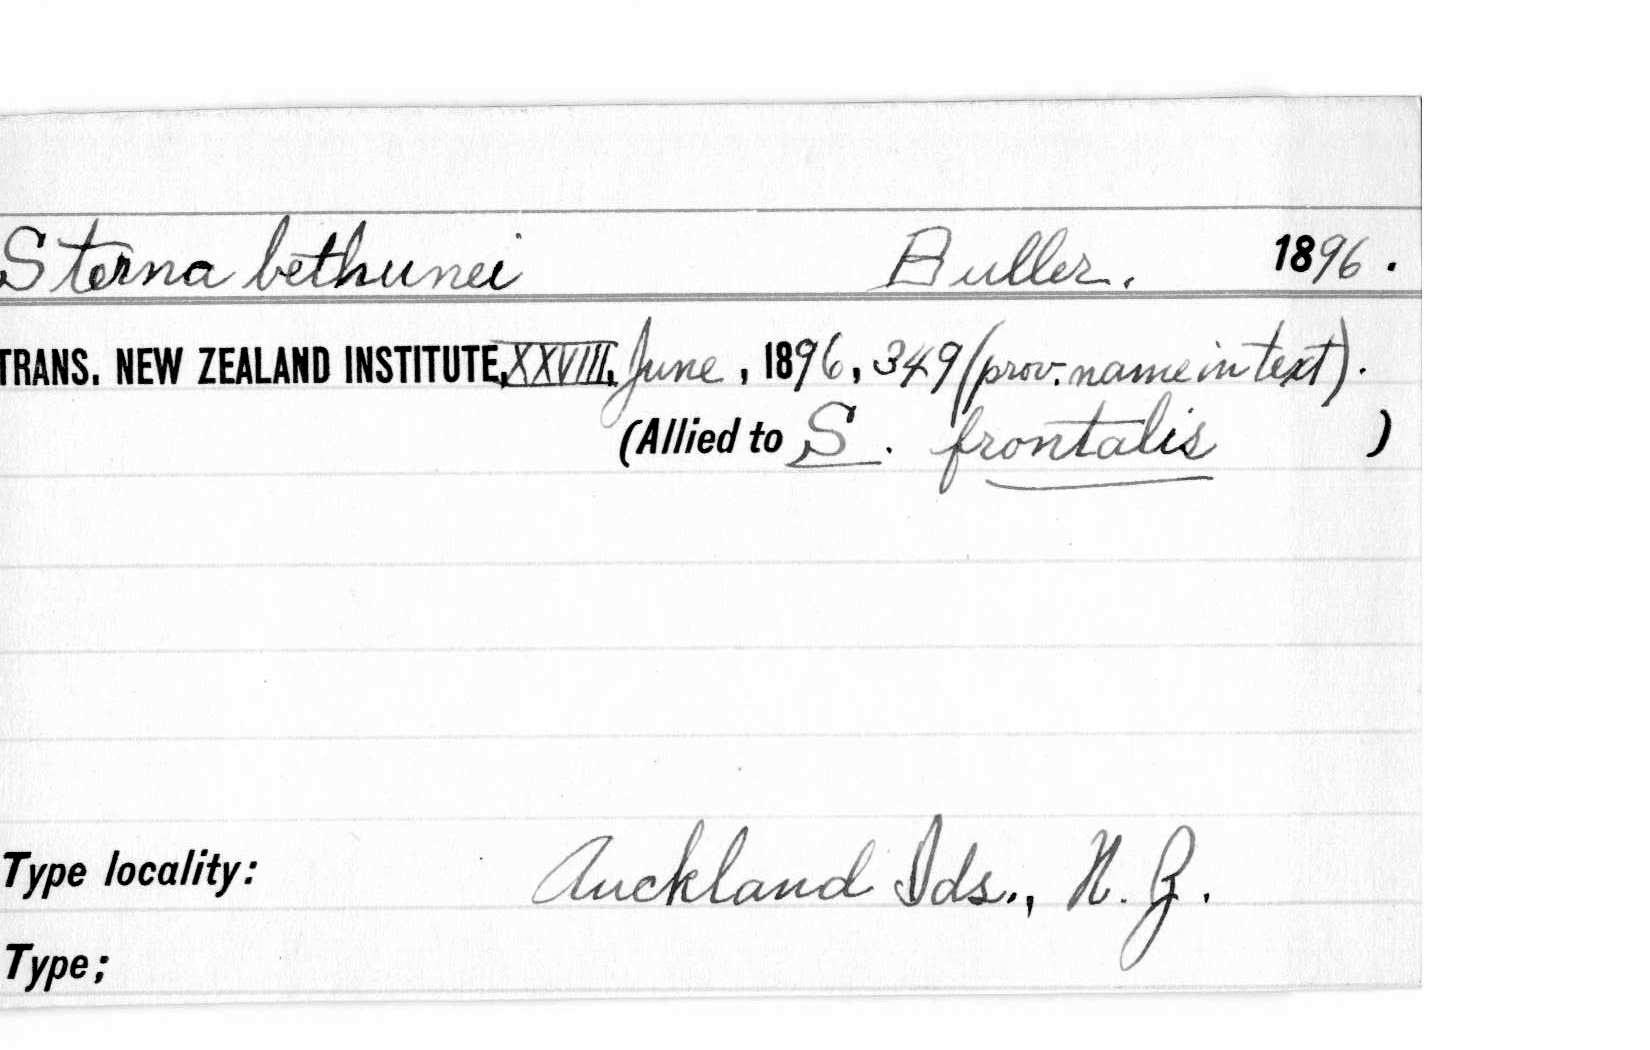 Sterna bethunei Buller. 1896.
TRANS. NEW ZEALAND INSTITUTE, XXVIII, June, 1896, 349 (prov. name in text).
(Allied to S. frontalis )
Type locality: Auckland Ids., N.Z.
Type;